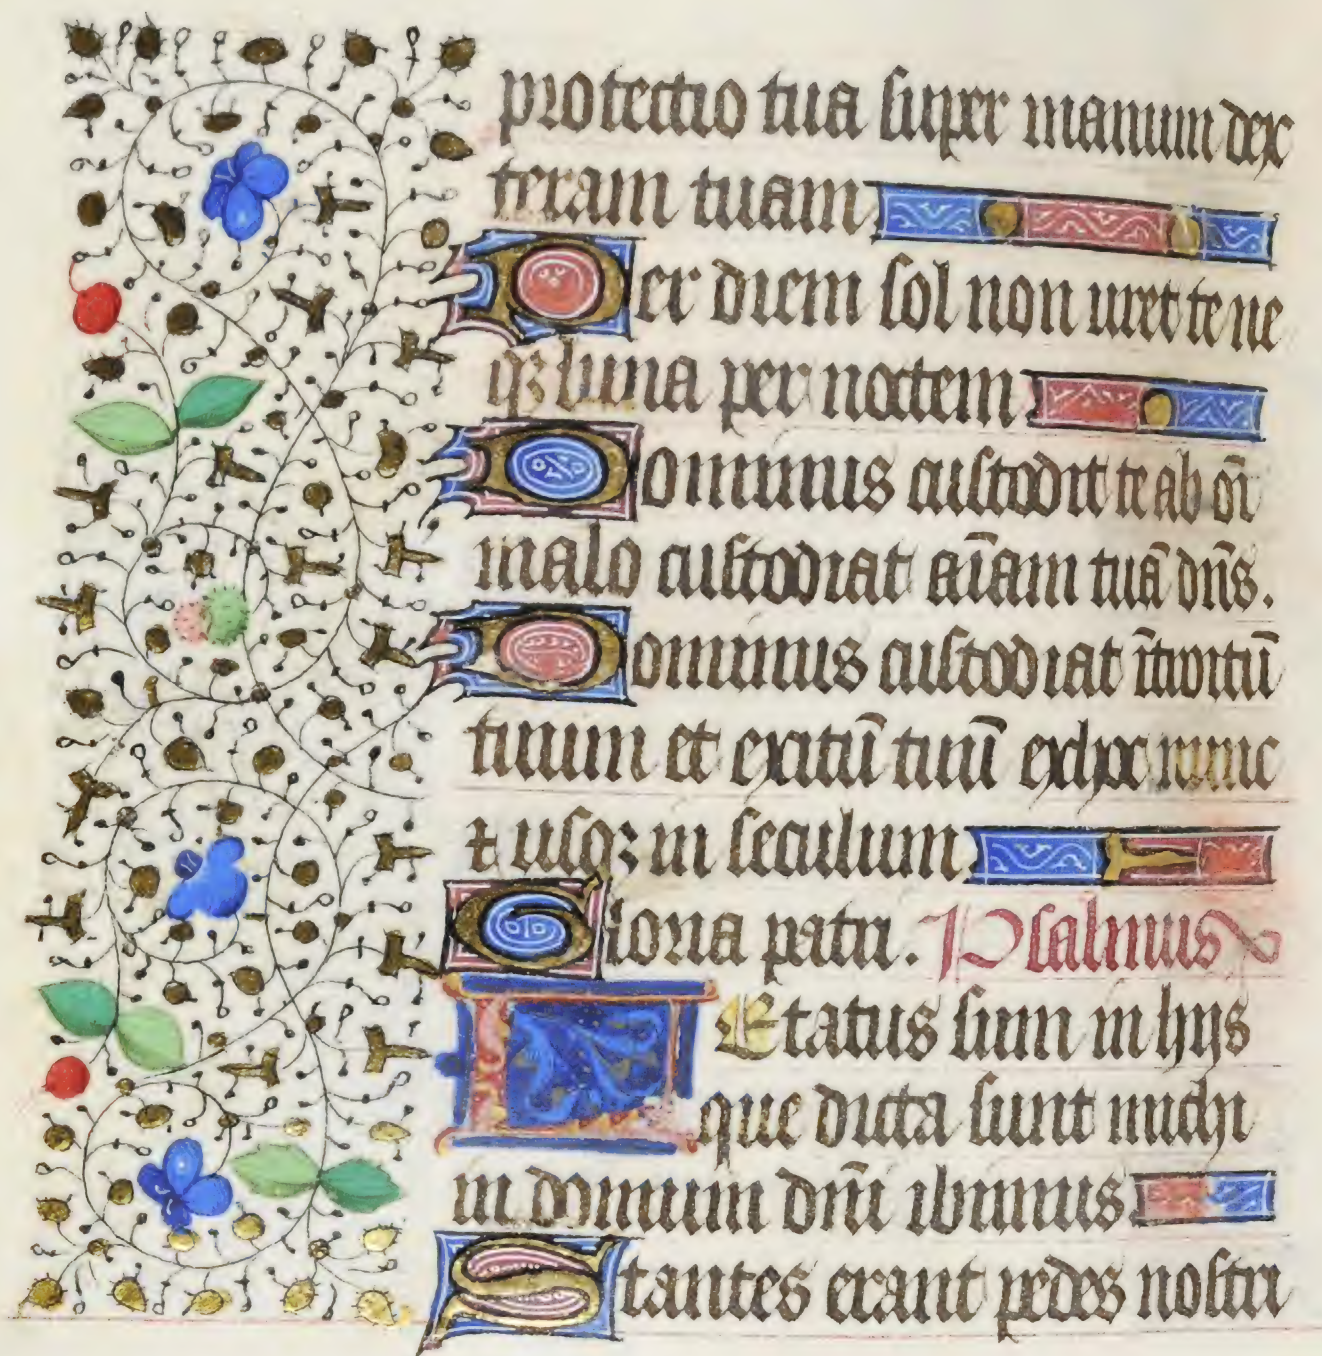 protectio tua super manum dex
teram tuam
Per diem sol non uret te ne
qꝫ luna per noctem
Dominus custodit te ab oī
malo custodiat aīam tuā dn̄s.
Dominus custodiat ītroitū
tuum et exitū tuū ex hoc nunc
⁊ usqꝫ in seculum
Gloria patri. Psalmus
Letatus sum in hijs
que dicta sunt michi
in domum dn̄i ibimus
Stantes erant pedes nostri